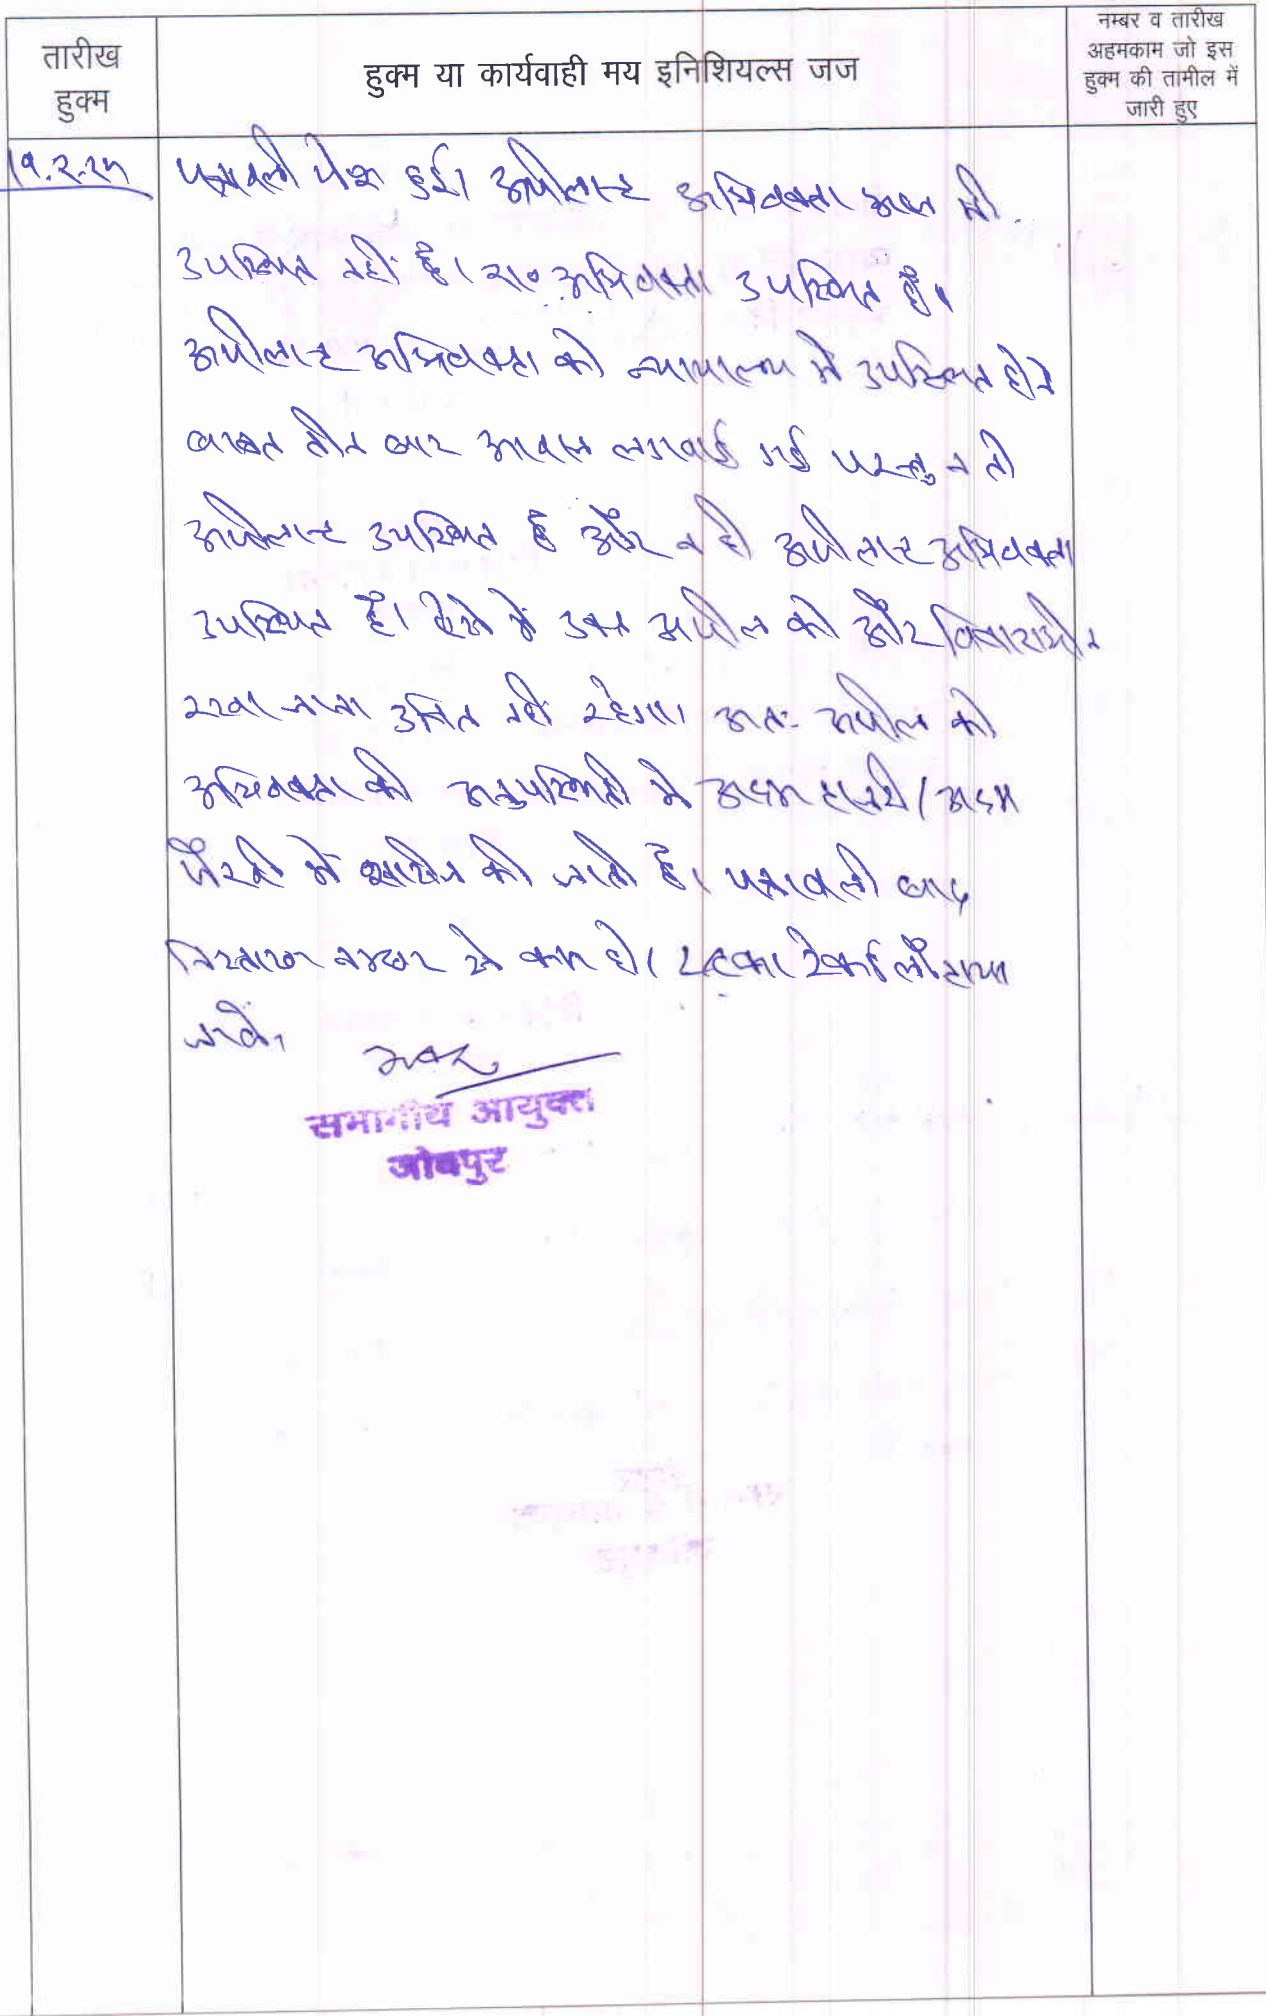 तारीख
हुक्म
हुक्म या कार्यवाही मय इनिशियल्स जज
नम्बर व तारीख
अहमकाम जो इस
हुक्म की तामील में
जारी हुए
पत्रावली पेश हुई। अपीलान्ट अभिवक्ता आज भी
उपस्थित नहीं है। रा० अभिवक्ता उपस्थित है।
अपीलान्ट अभिवक्ता को न्यायालय में उपस्थित होने
बाबत तीन बार आवाज लगवाई गई परन्तु न तो
अपीलान्ट उपस्थित है और न ही अपीलान्ट अभिवक्ता
उपस्थित है। ऐसे में उक्त अपील को और विचाराधीन
रखा जाना उचित नहीं रहेगा। अतः अपील को
अभिवक्ता की अनुपस्थिती में अदम हाजरी/अदम
पैरवी में खारीज की जाती है। पत्रावली बाद
नम्बर से कम हो। रेकर्ड लौटाया
जावे।
सभागीय आयुक्त
जोधपुर